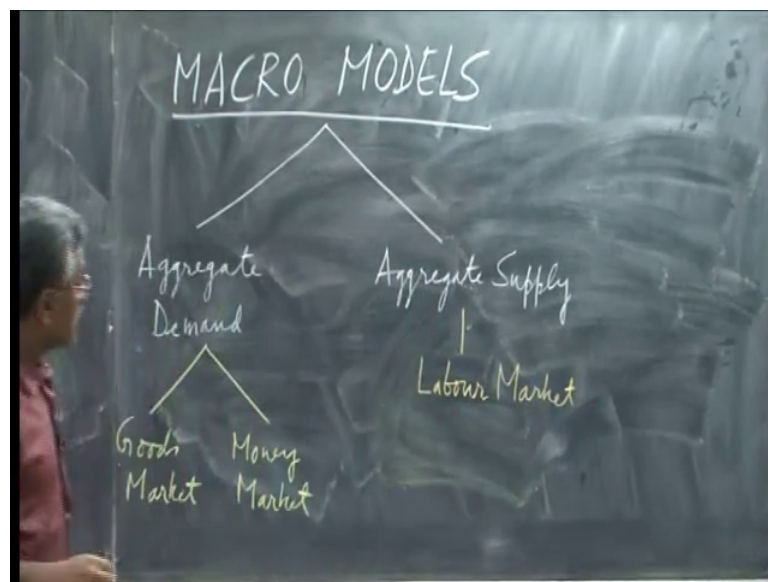 MACRO MODELS
Aggregate
Demand
Aggregate Supply
Labour Market
Goods
Market
Money
Market